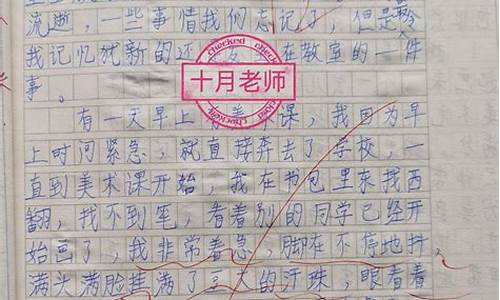 流逝，一些事情我们忘记了，但是令
我记忆犹新的还 发生在教室的一件
事。
checked
十月老师
checked
有一天早上有美术课，我因为早
上时间紧急，就直接奔去了学校，一
直到美术课开始，我在书包里东找西
翻，找不到笔，看着别的同学已经开
始画了，我非常着急，脚在不停地抖，
满头满脸挂满了豆大的汗珠，眼看着